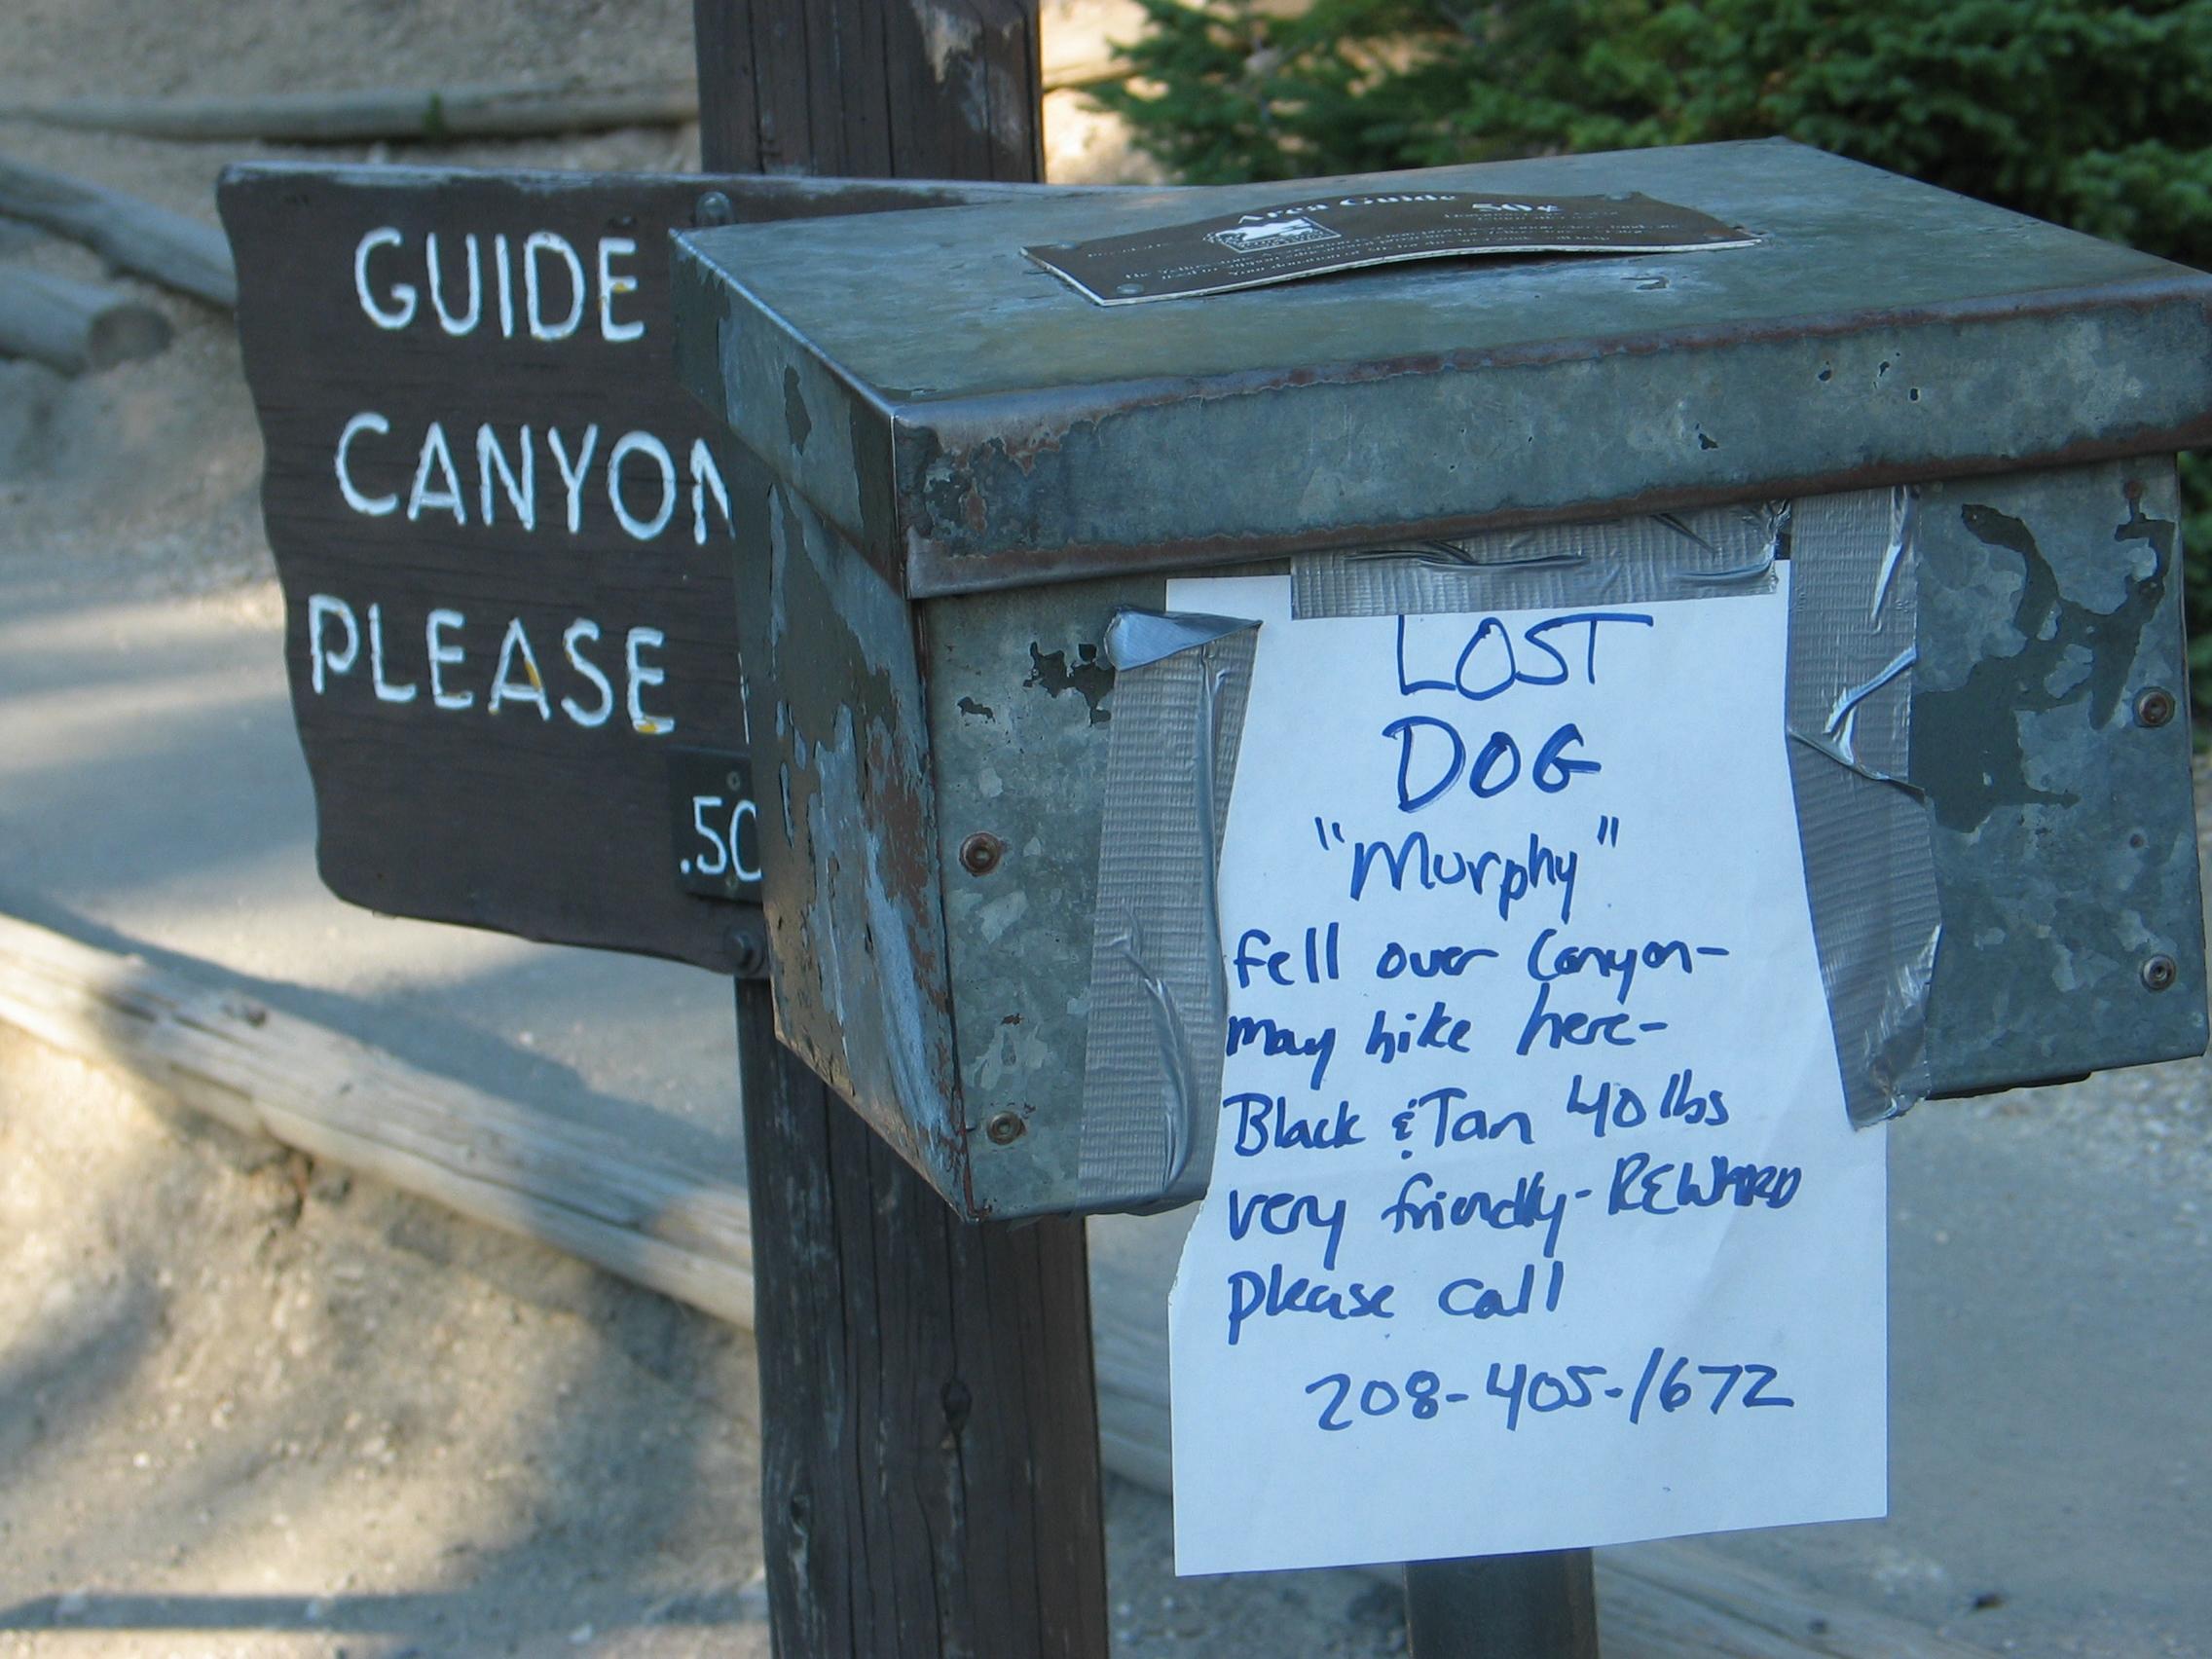 GUIDE
CANYON
PLEASE
.50
Area Guide 50¢
LOST
DOG
"Murphy"
fell over Canyon-
may hike here-
Black & Tan 40 lbs
very friendly - REWARD
please call
208-405-1672